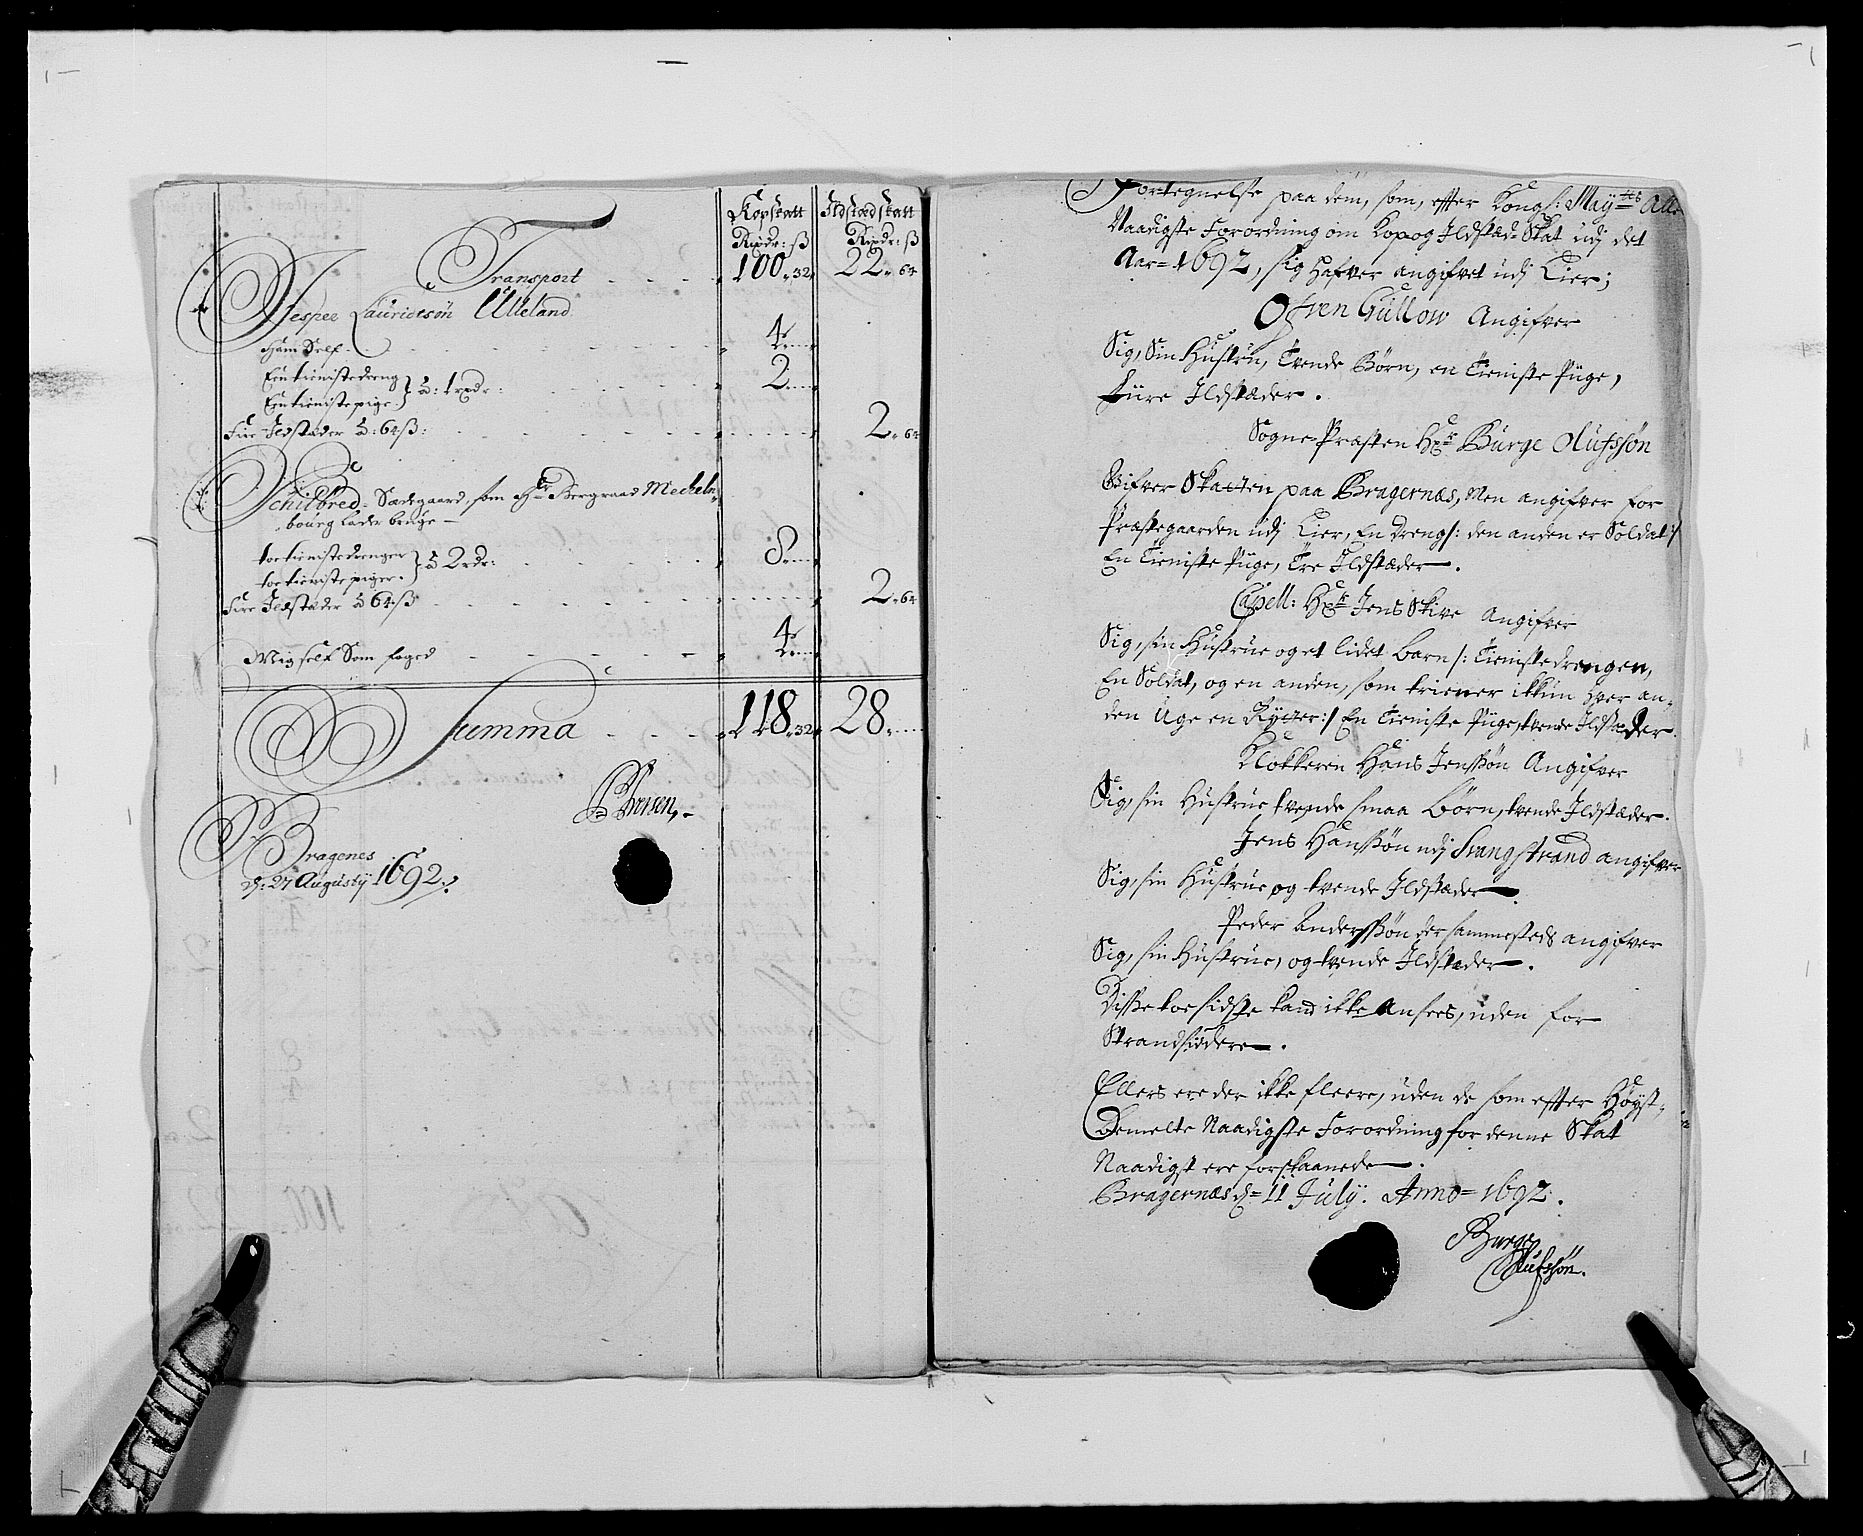 Kopskatt Ildstædskatt
Rixdr: ß Rixdr: ß
Transport 100„32„ 22„64
Jesper Lauridtsøn Ulleland
Ham Self 4„
Een tienistedreng
Een tienistepige } à: 1 rxdr: 2„
Fire Ildstæder à: 64 ß: 2„64
Schilbred Sædegaard, som Hr Bergraad Mecheln„
bourg lader bruge
toe tienistedrenger
toe tieniste piger } à 2 rdr: 8„
Fire Ildstæder à 64 ß 2„64
Mig self Som foged 4„
Summa 118„32„ 28„
Bragenes
d: 27 Augustij 1692
Fortegnelse paa dem, som, effter Kongl: Mayts Aller
Naadigste Forordning om Kop og Ildstæd Skat udj det
Aar= 1692, sig hafver angifvet udj Lier;
Ofven Güllow Angifver
Sig, Sin Hustru, Tvende Børn, en Tieniste Piige,
fiire Ildstæder.
Sogne-Præsten Hr Børge Olufssøn
Gifver Skatten paa Bragernæs, Men angifver for
Præstegaarden udj Lier, En dreng /: den anden er Soldat :/
En Tieniste Piige, Tre Ildstæder.
Capell: Hr Jens Skive Angifver
Sig, sin Hustrue og et lidet barn /: Tienistedrengen,
En Soldat, og en anden, som tiener ikkun hver an„
den Uge en Rytter :/ En Tieniste Piige, tvende Ildstæder.
Klokkeren Hans Jenssøn Angifver
Sig, sin Hustrue tvende smaa Børn, tvende Ildstæder.
Jens Hanssøn udj Svangstrand angifver
Sig, sin Hustrue og tvende Ildstæder.
Peder Anderssøn der sammesteds angifver
Sig, sin Hustrue, og tvende Ildstæder.
Disse toe sidste kand ikke Ansees, uden for
Strandsiddere.
Ellers ere der ikke fleere, uden de som effter Høyst„
Bemelte Naadigste Forordning for denne Skat
Naadigst ere forskaanede.
Bragernæs d= 11 July. Anno= 1692.
Børge
Olufssøn.